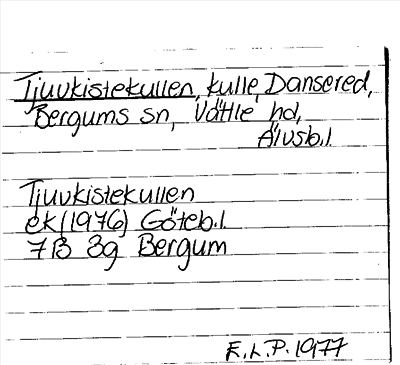 Tjuvkistekullen, kulle, Dansered,
Bergums sn, Vättle hd,
Älvsb.l
Tjuvkistekullen
ek (1976) Göteb.l.
7B 8g Bergum
E.L.P. 1977